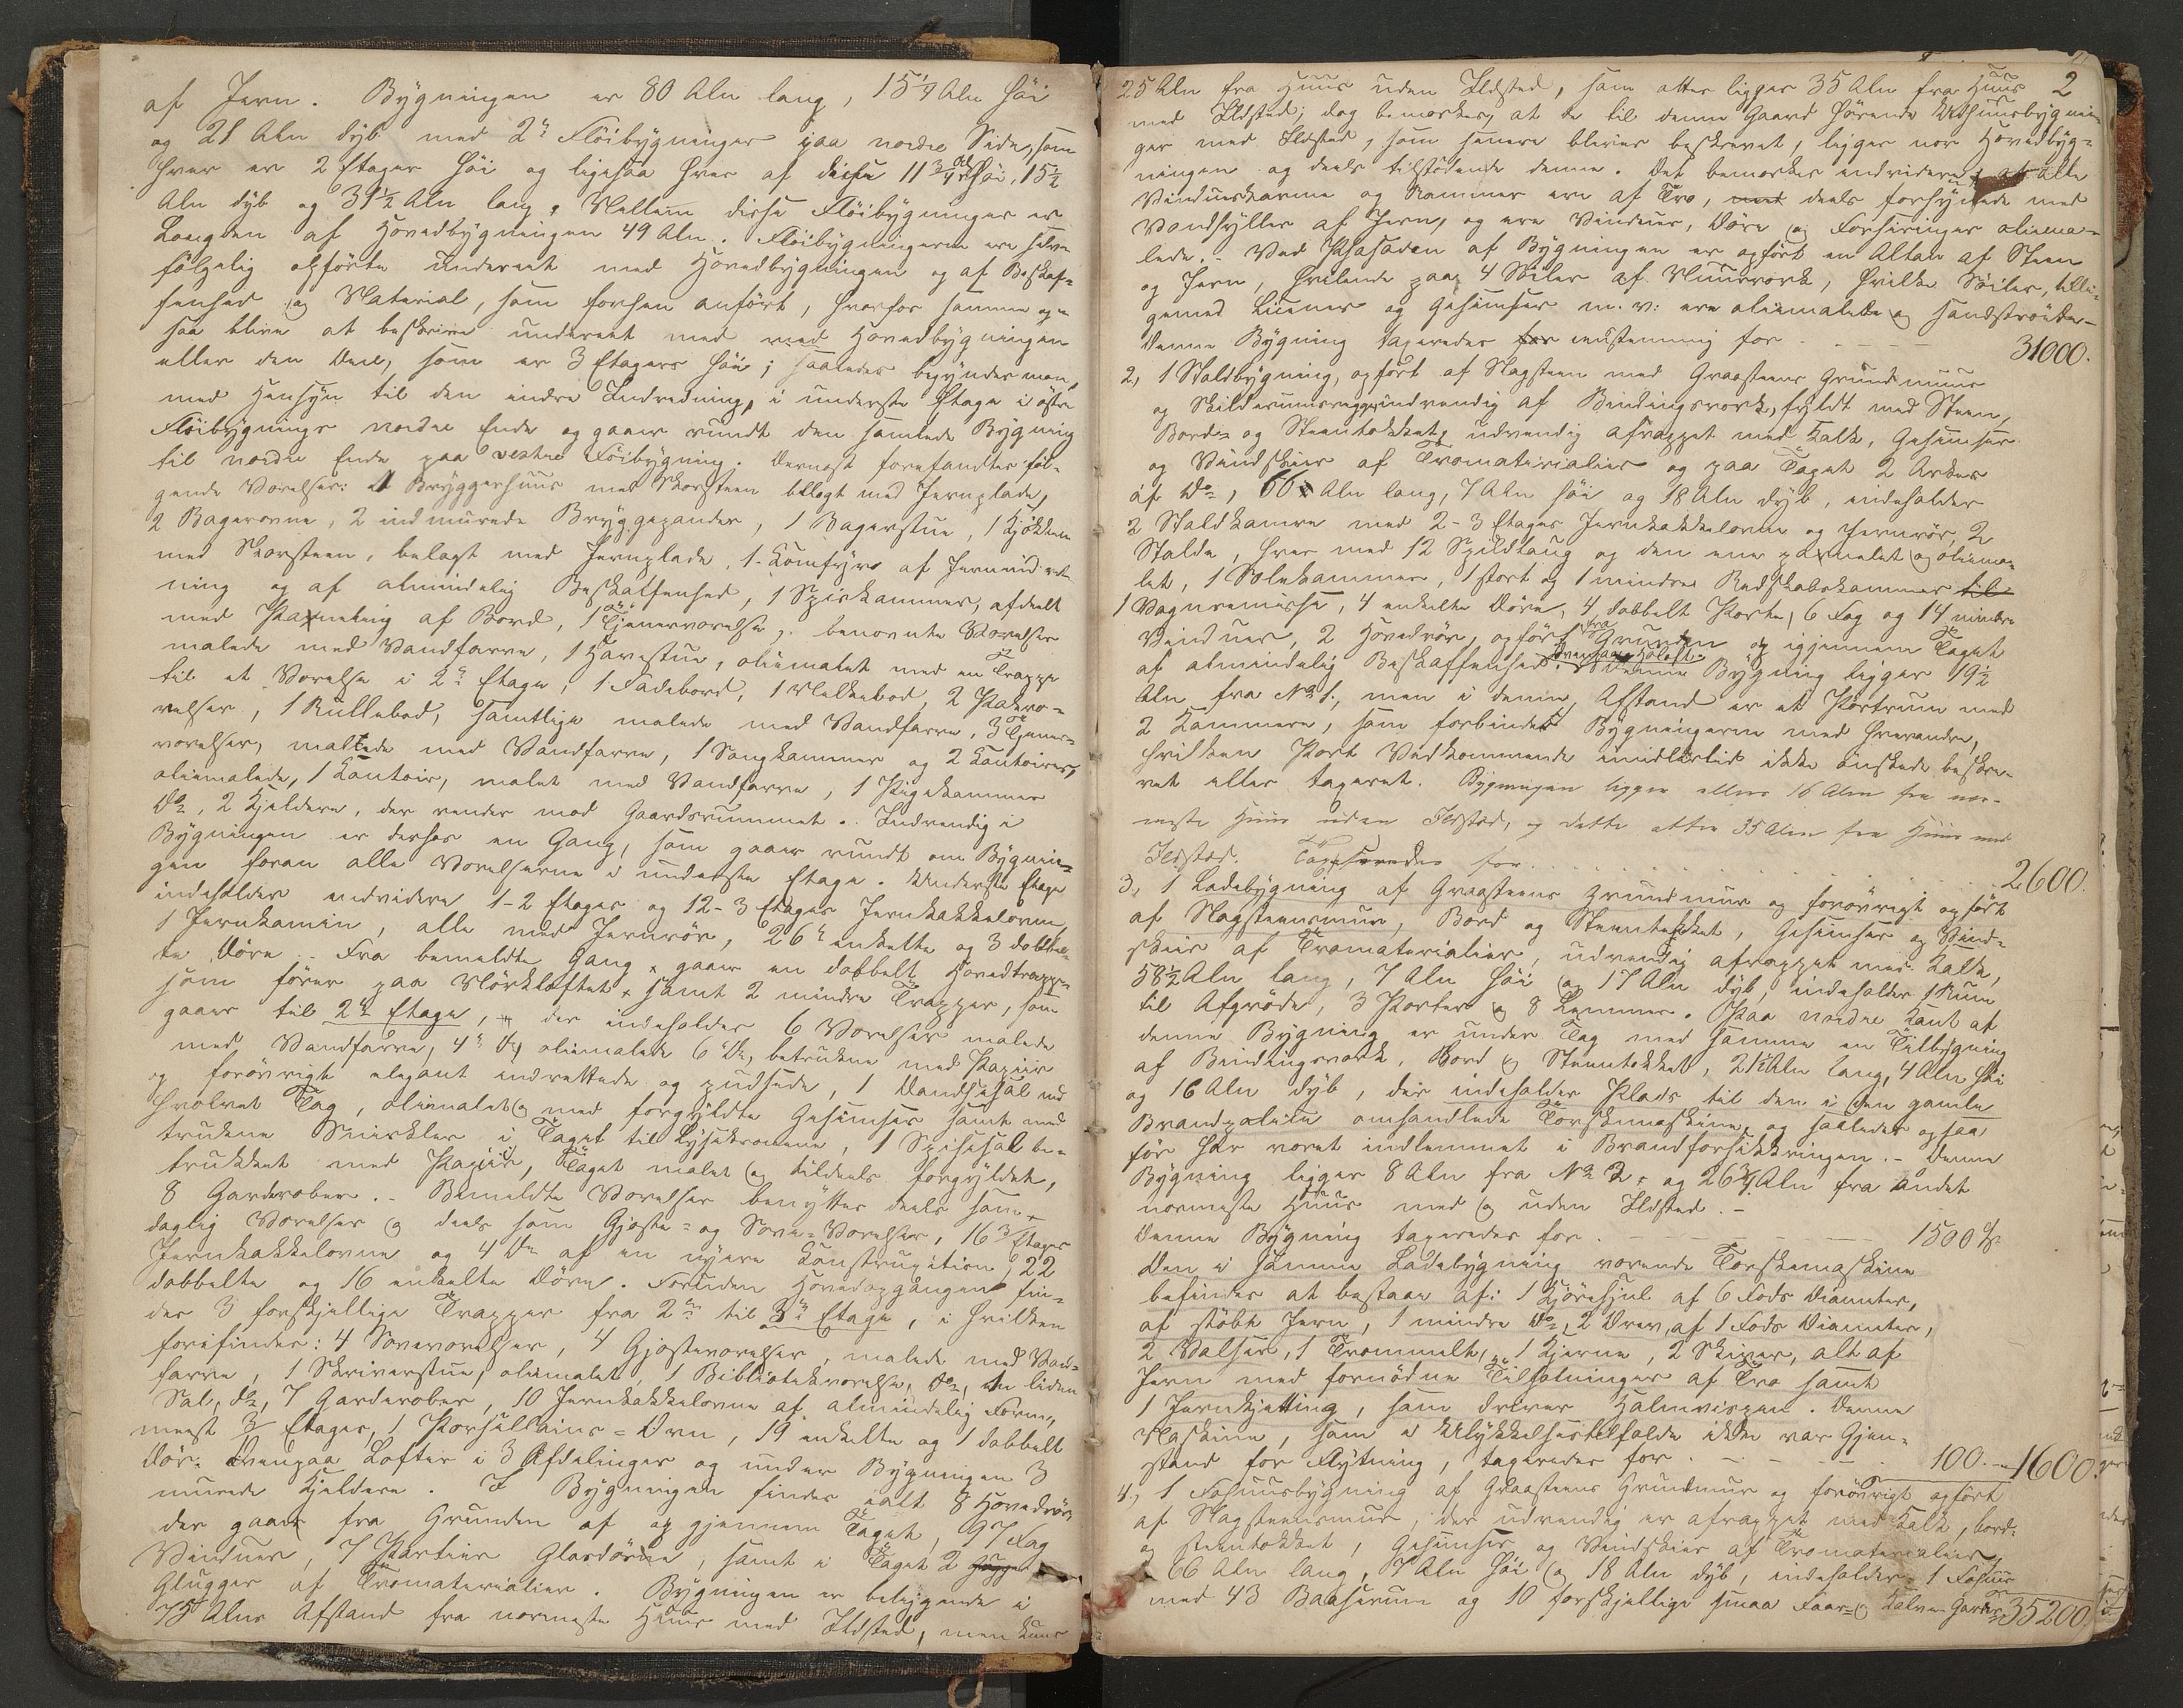 af Jern. Bygningen er 80 Aln lang, 15 1/4 Aln høi
og 21 Aln dyb med 2de Fløibygninger paa nordre Side, som
hver er 2 Etager høi og ligesaa hver af disse 11 3/4 Al høi, 15 1/2
Aln dyb og 31 1/2 Aln lang. Mellem disse Fløibygninger er
Længden af Hovedbygningen 49 Aln. Fløibygningerne ere
følgelig opførte undereet med Hovedbygningen og af Beskaf-
fenhed og Material, som forhen anført, hvorfor samme og-
saa blive at beskrive underet med med Hovedbygningen
eller den Deel, som er 3 Etagers høi; saaledes begyndes man
med Hensyn til den indre Indredning, i underste Etage i østre
Fløibygnings nordre Ende og gaaer rundt den samlede Bygning
til nordre Ende paa vestre Fløibygning. Dernæst forefandtes føl-
gende Værelser: 1 Bryggerhuus med Skorsteen belagt med Jernplade,
2 Bagerovne, 2 indmurede Bryggepander, 1 Bagerstue, 1 Kjøkken
med Skorsteen, belagt med Jernplade, 1 Komfyr af Jern
ning og af almindelig Beskaffenhed, 1 Spiskammer, afdeelt
med Panneling af Bord, 1 Tjenerværelse, benævnte Værelser
malede med Vandfarve, 1 Havestue, oliemalet med en Trappe
til et Værelse i 2den Etage, 1 Fadebord, 1 Melkebod, 2
relser, 1 Rullebod, samtlige malede med Vandfarve, 3 Tjener-
værelser, malede med Vandfarve, 1 Sengkammer og 2 Kontoirer,
oliemalede, 1 Kontoir, malet med Vandfarve, 1 Pigekammer
Do, 2 Kjeldere, der vender mod Gaardsrummet. Indvendig i
Bygningen er derhos en Gang, som gaaer rundt om Bygnin-
gen foran alle Værelserne i underste Etage. Underste Etage
indeholder endvidere 1-2 Etages og 12-3 Etages Jernkakkelovne,
1 Jernkamin, alle med Jernrør, 26 enkelte og 3 dobbel-
te Døre. Fra bemeldte Gang gaaer en dobbelt Hovedtrappe
som fører paa Mørkloftet samt 2 mindre Trapper, som
gaaer til 2den Etage, der indeholder 6 Værelser malede
med Vandfarve, 4 Do, oliemalede 6 Do, betrukne med Papiir
og forøvrigt elegant indrettede og pudsede, 1 Dandsesal med
hvælvet Tag, oliemalet og med forgyldte Gesimser samt med
trukne Snirkler i Taget til Lysekronene, 1 Spisesal be-
trukket med Papiir, Taget malet og tildeels forgyldet,
8 Garderober. - Bemeldte Værelser benyttes deels som
daglig Værelser og deels som Gjæste- og Sove-Værelser, 16 3 Etages
Jernkakkelovne og 4 Do af en nyere Konstruction, 22
dobbelte og 16 enkelte Døre. Foruden Hovedopgangen fin-
des 3 forskjellige Trapper fra 2den til 3die Etage, i hvilken
forefindes: 4 Soveværelser, 4 Gjæsteværelser, malede med Vand-
farve, 1 Skriverstue, oliemalet, 1 Bibliotekværelse, Do, en liden
Sal, Do, 7 Garderober, 10 Jernkakkelovne af almindelig Form,
meest 3 Etages, 1 Porsellains-Ovn, 19 enkelte og 1 dobbelt
Dør. Ovenpaa Lofter i 3 Afdelinger og under Bygningen 3
murede Kjeldere. I Bygningen findes ialt 8 Hovedrør,
der gaaer fra Grunden af og gjennem Taget, 97 Fag
Vinduer, 7 Partier Glasdøre, samt i Taget 2
Glugger af Træmaterialier. Bygningen er beliggende i
75 Alns Afstand fra nærmeste Huus med Ildsted, men kuns
2
25 Aln fra Huus uden Ildsted, som atter ligger 35 Aln fra Huus
med Ildsted; dog bemærkes, at de til denne Gaard hørende Udhuusbygnin-
ger med Ildsted, som senere bliver beskrevet, ligger nær Hovedbyg-
ningen og deels tilstødende denne. Det bemærkes endvidere, at alle
Vindueskarme og Rammer ere af Træ, med deels forsynede med
Vandhyller af Jern, og ere Vinduer, Døre og Forsiringer oliema-
lede. - Ved Fasaden af Bygningen er opført en Altan af Steen
og Jern, hvilende paa 4 Søiler af Muurværk, hvilke Søiler, tilli-
gemed Licener og Gesimser m. v: ere oliemalede og sandstrøede. -
Denne Bygning taxeredes for eenstemmig for - - - - 31000.
2, 1 Staldbygning, opført af Slagsteen med Graasteens Grundmuur
og Skilderumsvægge indvendig af Bindingsværk, fyldt med Steen,
Bord- og Steentækket, udvendig afrappet med Kalk, Gesimser
og Vindskier af Træmaterialier og paa Taget 2 Arker
af Do, 66 Aln lang, 7 Aln høi og 18 Aln dyb, indeholder
2 Staldkamre med 2-3 Etages Jernkakkelovne og Jernrør, 2
Stalde, hver med 12 Spildtaug og den ene panelet og oliema-
let, 1 Selekammer, 1 stort og 1 mindre Redskabskammer til
1 Vognremisse, 4 enkelte Døre, 4 dobbelt Porte, 6 Fag og 14 mindre
Vinduer, 2 Hovedrør, opført fra Grunden og igjennem Taget
af almindelig Beskaffenhed. Ovenpaa Høloft. Denne Bygning ligger 19 1/2
Aln fra No 1., men i denne Afstand er et Portrum med
2 Kammere, som forbinder Bygningerne med hverandre,
hvilken Port Vedkommende imidlertid ikke ønskede beskre-
vet eller taxeret. Bygningen ligger ellers 16 Alen fra nær-
meste Huus uden Ildsted, og dette atter 35 Alen fra Huus med
Ildsted. Taxeredes for . . . 2600.
3, 1 Ladebygning af Graasteens Grundmuur og forøvrigt opført
af Slagsteensmuur, Bord og Steentækket, Gesimser og Vind-
skier af Træmaterialier, udvendig afrappet med Kalk,
58 1/2 Aln lang, 7 Aln høi og 17 Aln dyb, indeholder 1 Rum
til Afgrøde, 3 Porter og 8 Lemmer. Paa nordre Kant af
denne Bygning er under Tag med samme en Tilbygning
af Bindingsværk, Bord og Steentækket, 21 1/2 Aln lang, 4 Aln høi
og 16 Aln dyb, der indeholder Plads til den i den gamle
Brandpolice omhandlede Tærskemaskine, og saaledes ogsaa
før har været indlemmet i Brandforsikkringen. - Denne
Bygning ligger 8 Aln fra No 2, og 26 3/4 Aln fra andet
nærmeste Huus med og uden Ildsted. -
Denne Bygning taxeredes for . - - - - 1500
Den i samme Ladebygning værende Tærskemaskine
befindes at bestaae af: 1 Kjørehjul af 6 Fods Diameter,
af støbt Jern, 1 mindre Do, 2 Drev, af 1 Fods Diameter,
2 Valser, 1 Trommelt, 1 Kjerne, 2 Skiver, alt af
Jern med fornødne Tilholninger af Træ samt
1 Jernkjetting, som driver Halmvispen. Denne
Maskine, som i Ulykkelsestilfælde ikke var Gjen-
stand for Flytning, taxeredes for . - - - 100. - 1600.
4., 1 Fæhuusbygning af Graasteens Grundmuur og forøvrigt opført
af Slagsteensmuur, der udvendig er afrappet med Kalk, bord-
og steentækket, Gesimser og Vindskier af Træmaterialier,
66 Aln lang, 7 Aln høi og 18 Aln dyb, indeholder 1 Fæhuus
med 43 Baaserum og 10 forskjellige smaa Faar- og Kalve-Garder 35200.